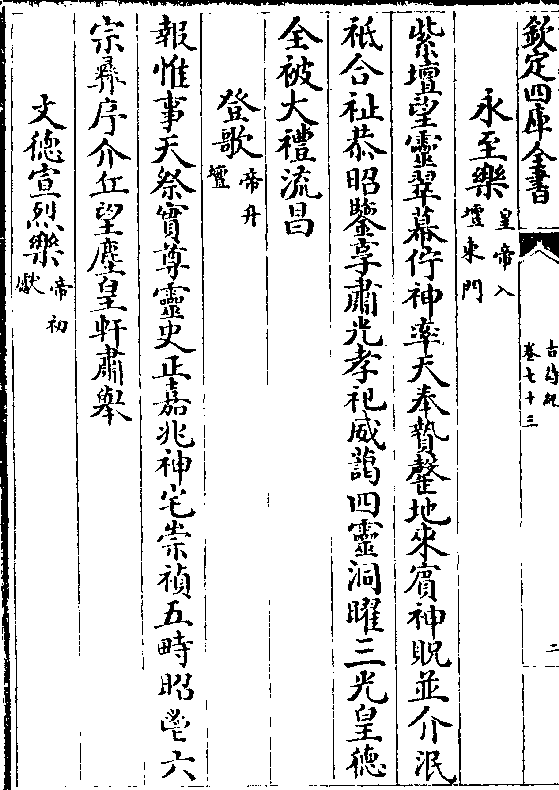 欽定四庫全書
古詩紀
卷七十三
二
永至樂皇帝入壇東門
紫壇望靈翠幕佇神率天奉贄罄地來賓神貺並介泯
祇合祉恭昭鑒享肅光孝祀威藹四靈洞曜三光皇德
全被大禮流昌
登歌帝升壇
報惟事天祭實尊靈史正嘉兆神宅崇禎五畤昭鬯六
宗彞序介丘望塵皇軒肅舉
文德宣烈樂帝初獻